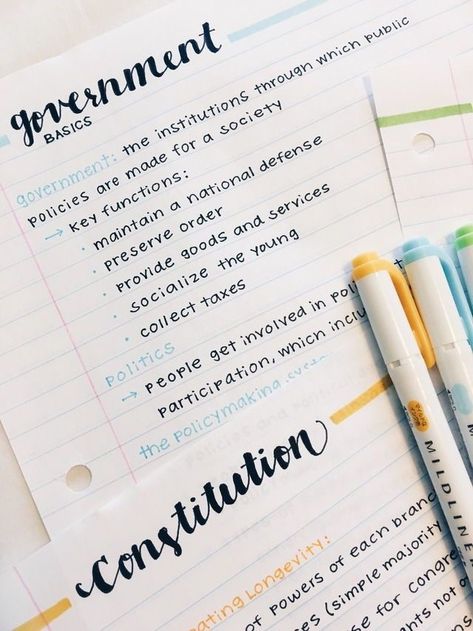 government
BASICS
government: the institutions through which public
policies are made for a society
→ key functions:
• maintain a national defense
• preserve order
• provide goods and services
• socialize the young
• collect taxes
politics
→ people get involved in
participation, which
the policymaking
Constitution
Longevity:
of powers of each
(simple majority
for
not
MILDLINE